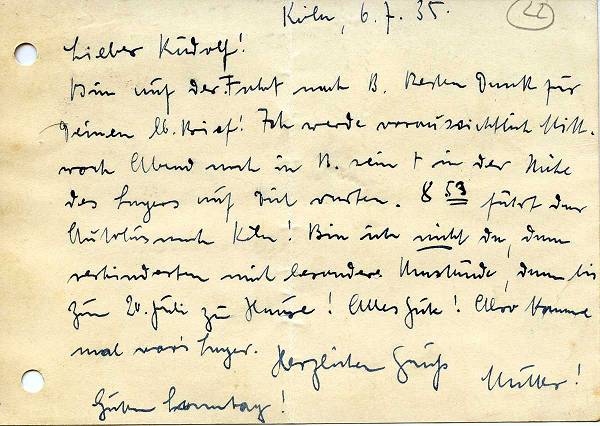 Köln, 6.7.35.
22
Lieber Rudolf!
Bin auf der Fahrt nach B. Besten Dank für
Deinen lb. Brief! Ich werde voraussichtlich Mitt-
woch Abend noch in B. sein + in der Nähe
des Lagers auf Dich warten. 8 53 fährt der
Autobus nach Köln! Bin ich nicht da, dann
verhinderten mich besondere Umstände, dann bis
zum 20. Juli zu Hause! Alles Gute! Also komme
mal vor's Lager. Herzlichen Gruß
Mutter!
Guten Sonntag!